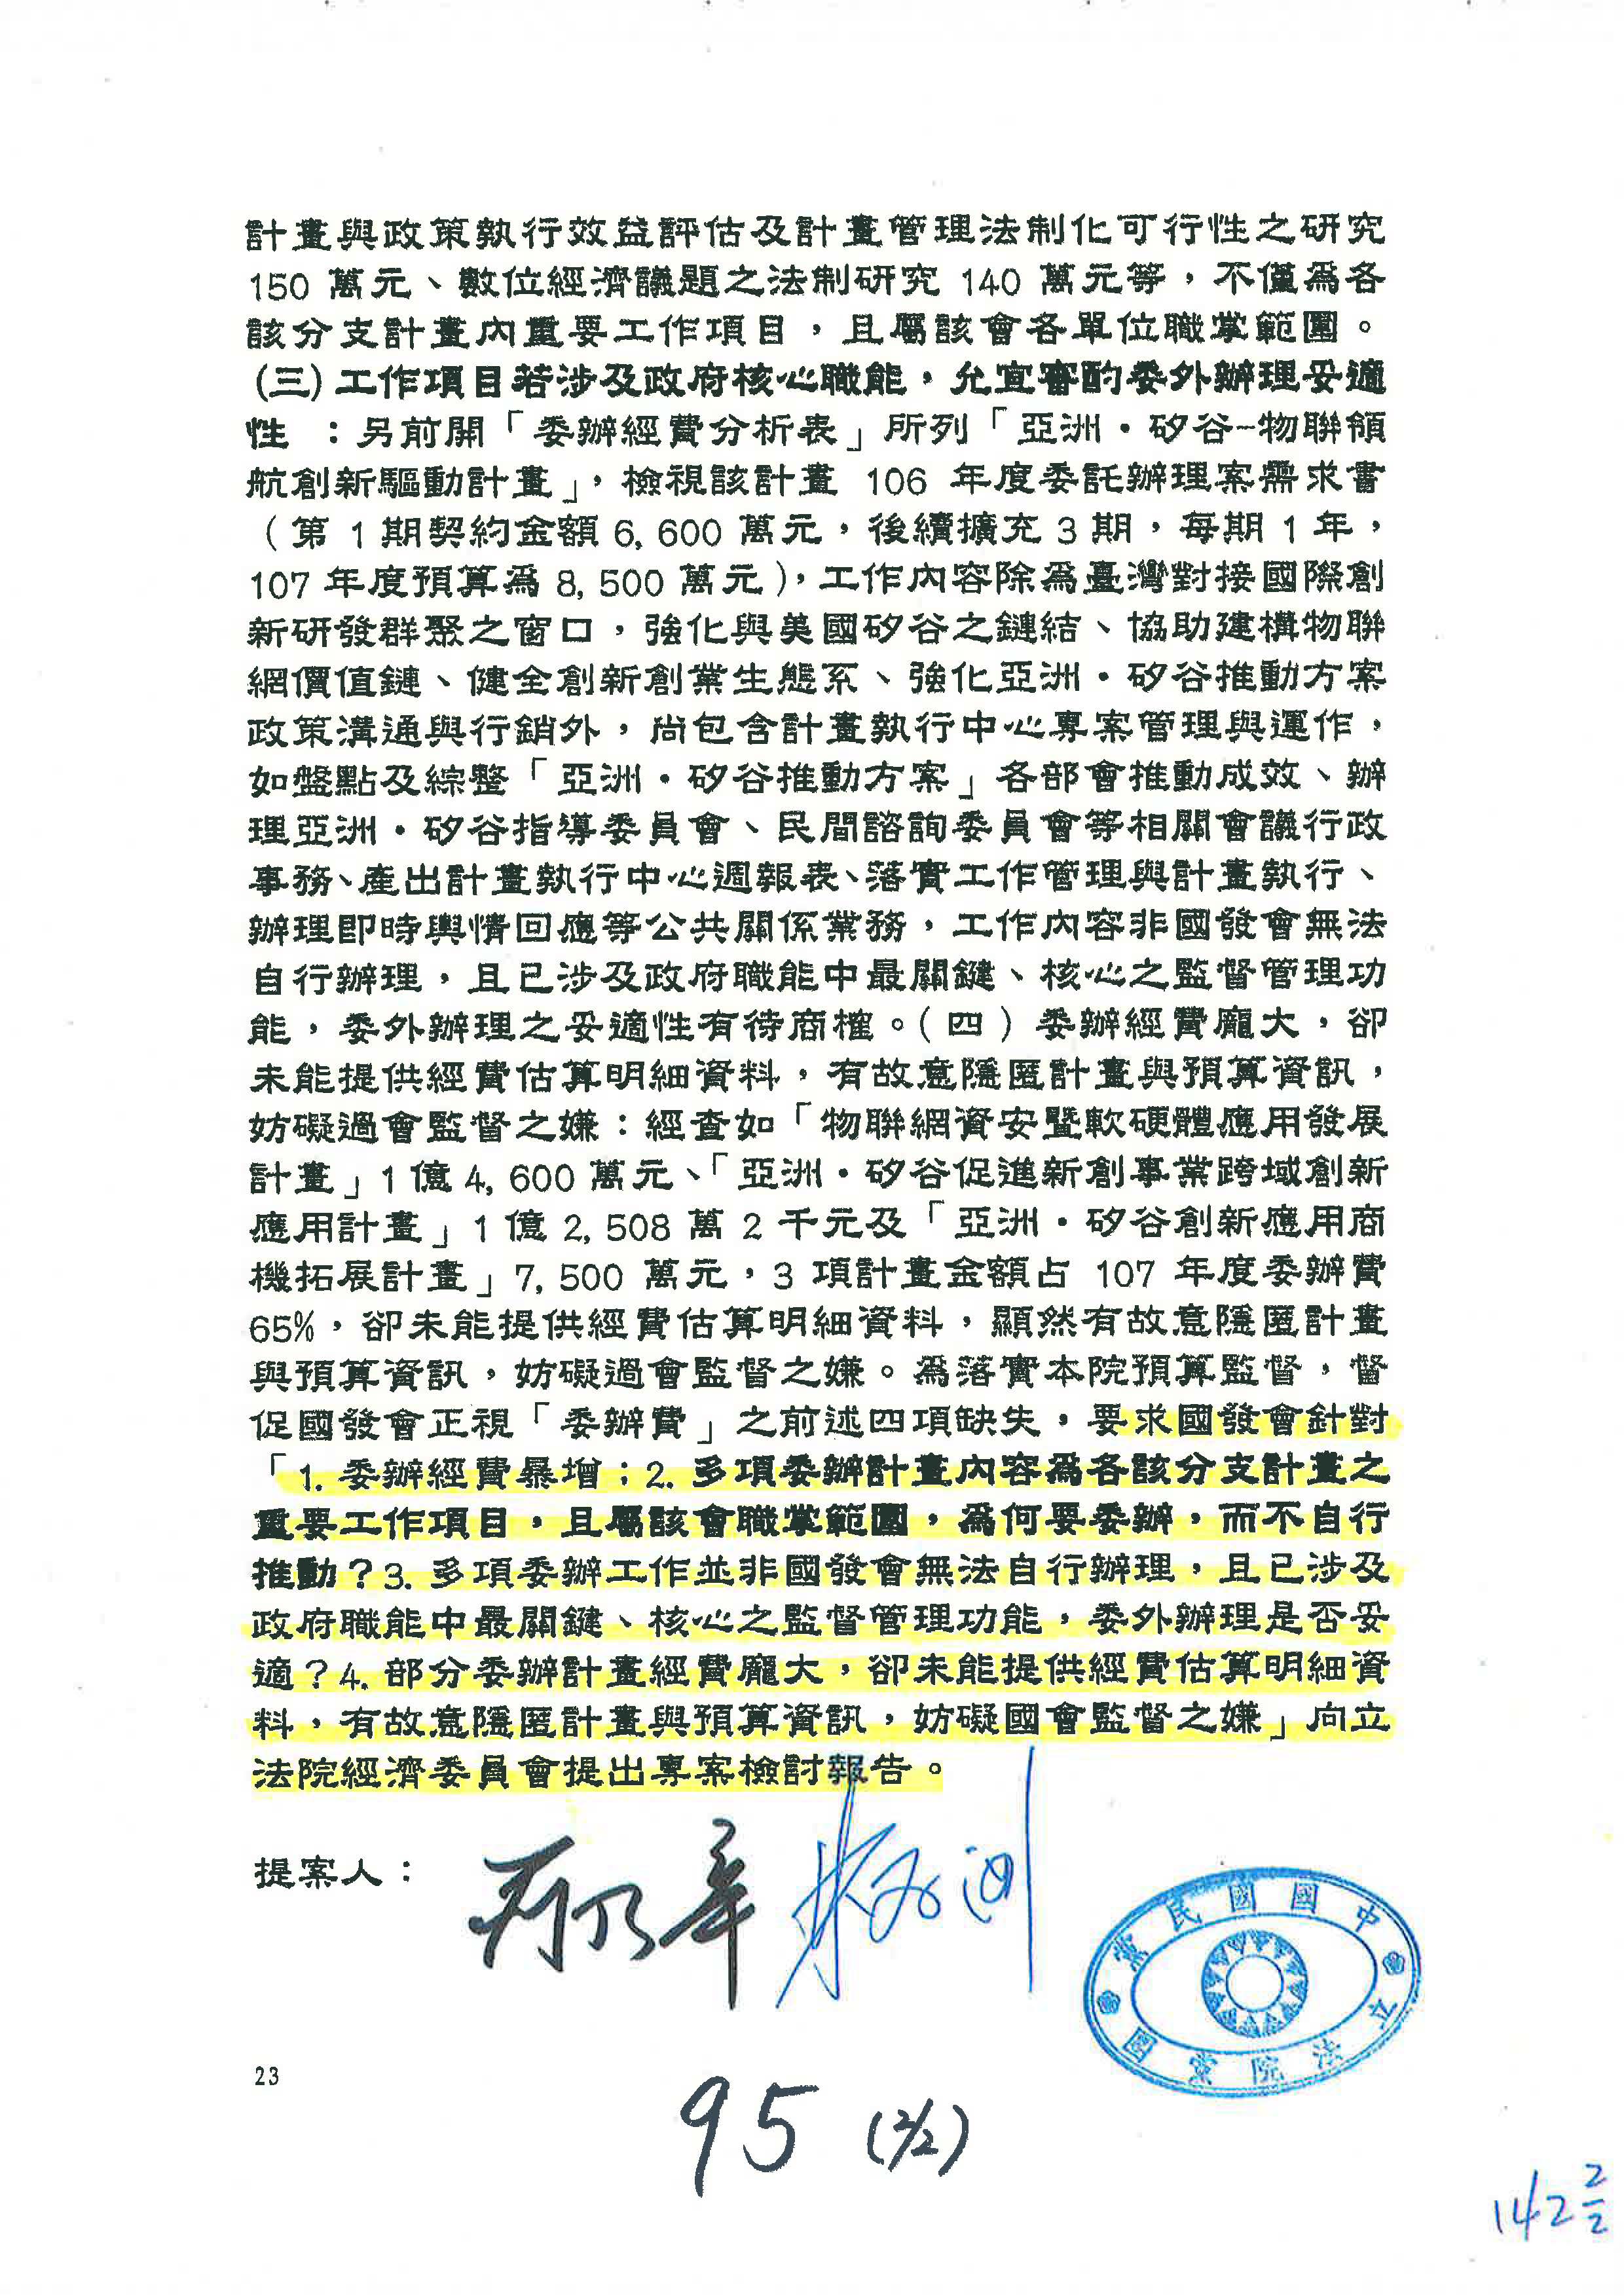 計畫與政策執行效益評估及計畫管理法制化可行性之研究
150 萬元、數位經濟議題之法制研究 140 萬元等，不僅為各
該分支計畫內重要工作項目，且屬該會各單位職掌範圍。
(三)工作項目若涉及政府核心職能，允宜審酌委外辦理妥適
性 ：另前開「委辦經費分析表」所列「亞洲・矽谷-物聯領
航創新驅動計畫」，檢視該計畫 106 年度委託辦理案需求書
（第 1 期契約金額 6,600 萬元，後續擴充 3 期，每期 1 年，
107 年度預算為 8,500 萬元），工作內容除為臺灣對接國際創
新研發群聚之窗口，強化與美國矽谷之鏈結、協助建構物聯
網價值鏈、健全創新創業生態系、強化亞洲・矽谷推動方案
政策溝通與行銷外，尚包含計畫執行中心專案管理與運作，
如盤點及綜整「亞洲・矽谷推動方案」各部會推動成效、辦
理亞洲・矽谷指導委員會、民間諮詢委員會等相關會議行政
事務、產出計畫執行中心週報表、落實工作管理與計畫執行、
辦理即時輿情回應等公共關係業務，工作內容非國發會無法
自行辦理，且已涉及政府職能中最關鍵、核心之監督管理功
能，委外辦理之妥適性有待商榷。（四）委辦經費龐大，卻
未能提供經費估算明細資料，有故意隱匿計畫與預算資訊，
妨礙過會監督之嫌：經查如「物聯網資安暨軟硬體應用發展
計畫」1 億 4,600 萬元、「亞洲・矽谷促進新創事業跨域創新
應用計畫」1 億 2,508 萬 2 千元及「亞洲・矽谷創新應用商
機拓展計畫」7,500 萬元，3 項計畫金額占 107 年度委辦費
65%，卻未能提供經費估算明細資料，顯然有故意隱匿計畫
與預算資訊，妨礙過會監督之嫌。為落實本院預算監督，督
促國發會正視「委辦費」之前述四項缺失，要求國發會針對
「1. 委辦經費暴增；2. 多項委辦計畫內容為各該分支計畫之
重要工作項目，且屬該會職掌範圍，為何要委辦，而不自行
推動？3. 多項委辦工作並非國發會無法自行辦理，且已涉及
政府職能中最關鍵、核心之監督管理功能，委外辦理是否妥
適？4. 部分委辦計畫經費龐大，卻未能提供經費估算明細資
料，有故意隱匿計畫與預算資訊，妨礙國會監督之嫌」向立
法院經濟委員會提出專案檢討報告。
提案人：
中國國民黨
立法院黨團
23
95 (2/2)
142 2/2